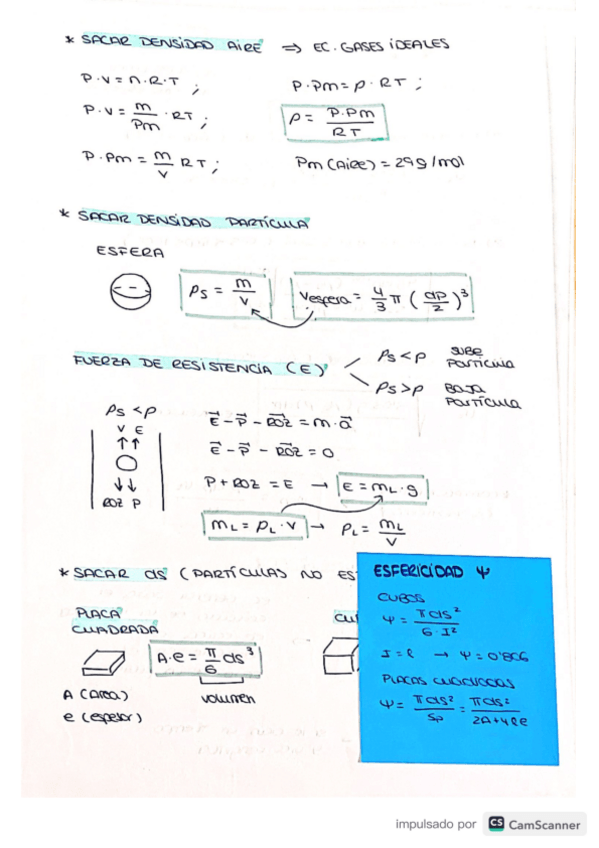 * SACAR DENSIDAD AIRE ⇒ EC. GASES IDEALES
P·V = n·R·T ;
P·V = m/Pm · RT ;
P·Pm = m/V RT ;
P·Pm = ρ·RT ;
ρ = P·Pm / RT
Pm (Aire) = 29 g/mol
* SACAR DENSIDAD PARTÍCULA
ESFERA
ρs = m/V
Vesfera = 4/3 π (dp/2)³
FUERZA DE RESISTENCIA (E)
ρs < ρ SUBE PARTÍCULA
ρs > ρ BAJA PARTÍCULA
ρs < ρ
V E
ROZ P
E - P - ROZ = m·a
E - P - ROZ = 0
P + ROZ = E → E = mL · g
mL = ρL · V → ρL = mL/V
* SACAR ds (PARTÍCULAS NO ES
PLACA
CUADRADA
A·e = π/6 ds³
VOLUMEN
A (AREA)
e (espesor)
CU
ESFERICIDAD ψ
CUBOS
ψ = π ds² / 6·I²
I = l → ψ = 0'806
PLACAS CUADRADAS
ψ = π ds² / Sp = π ds² / 2A+4le
impulsado por CS CamScanner